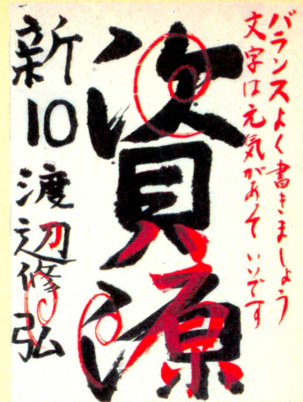 バランスよく書きましょう
文字は元気があっていいです
資源
新10 渡辺修弘